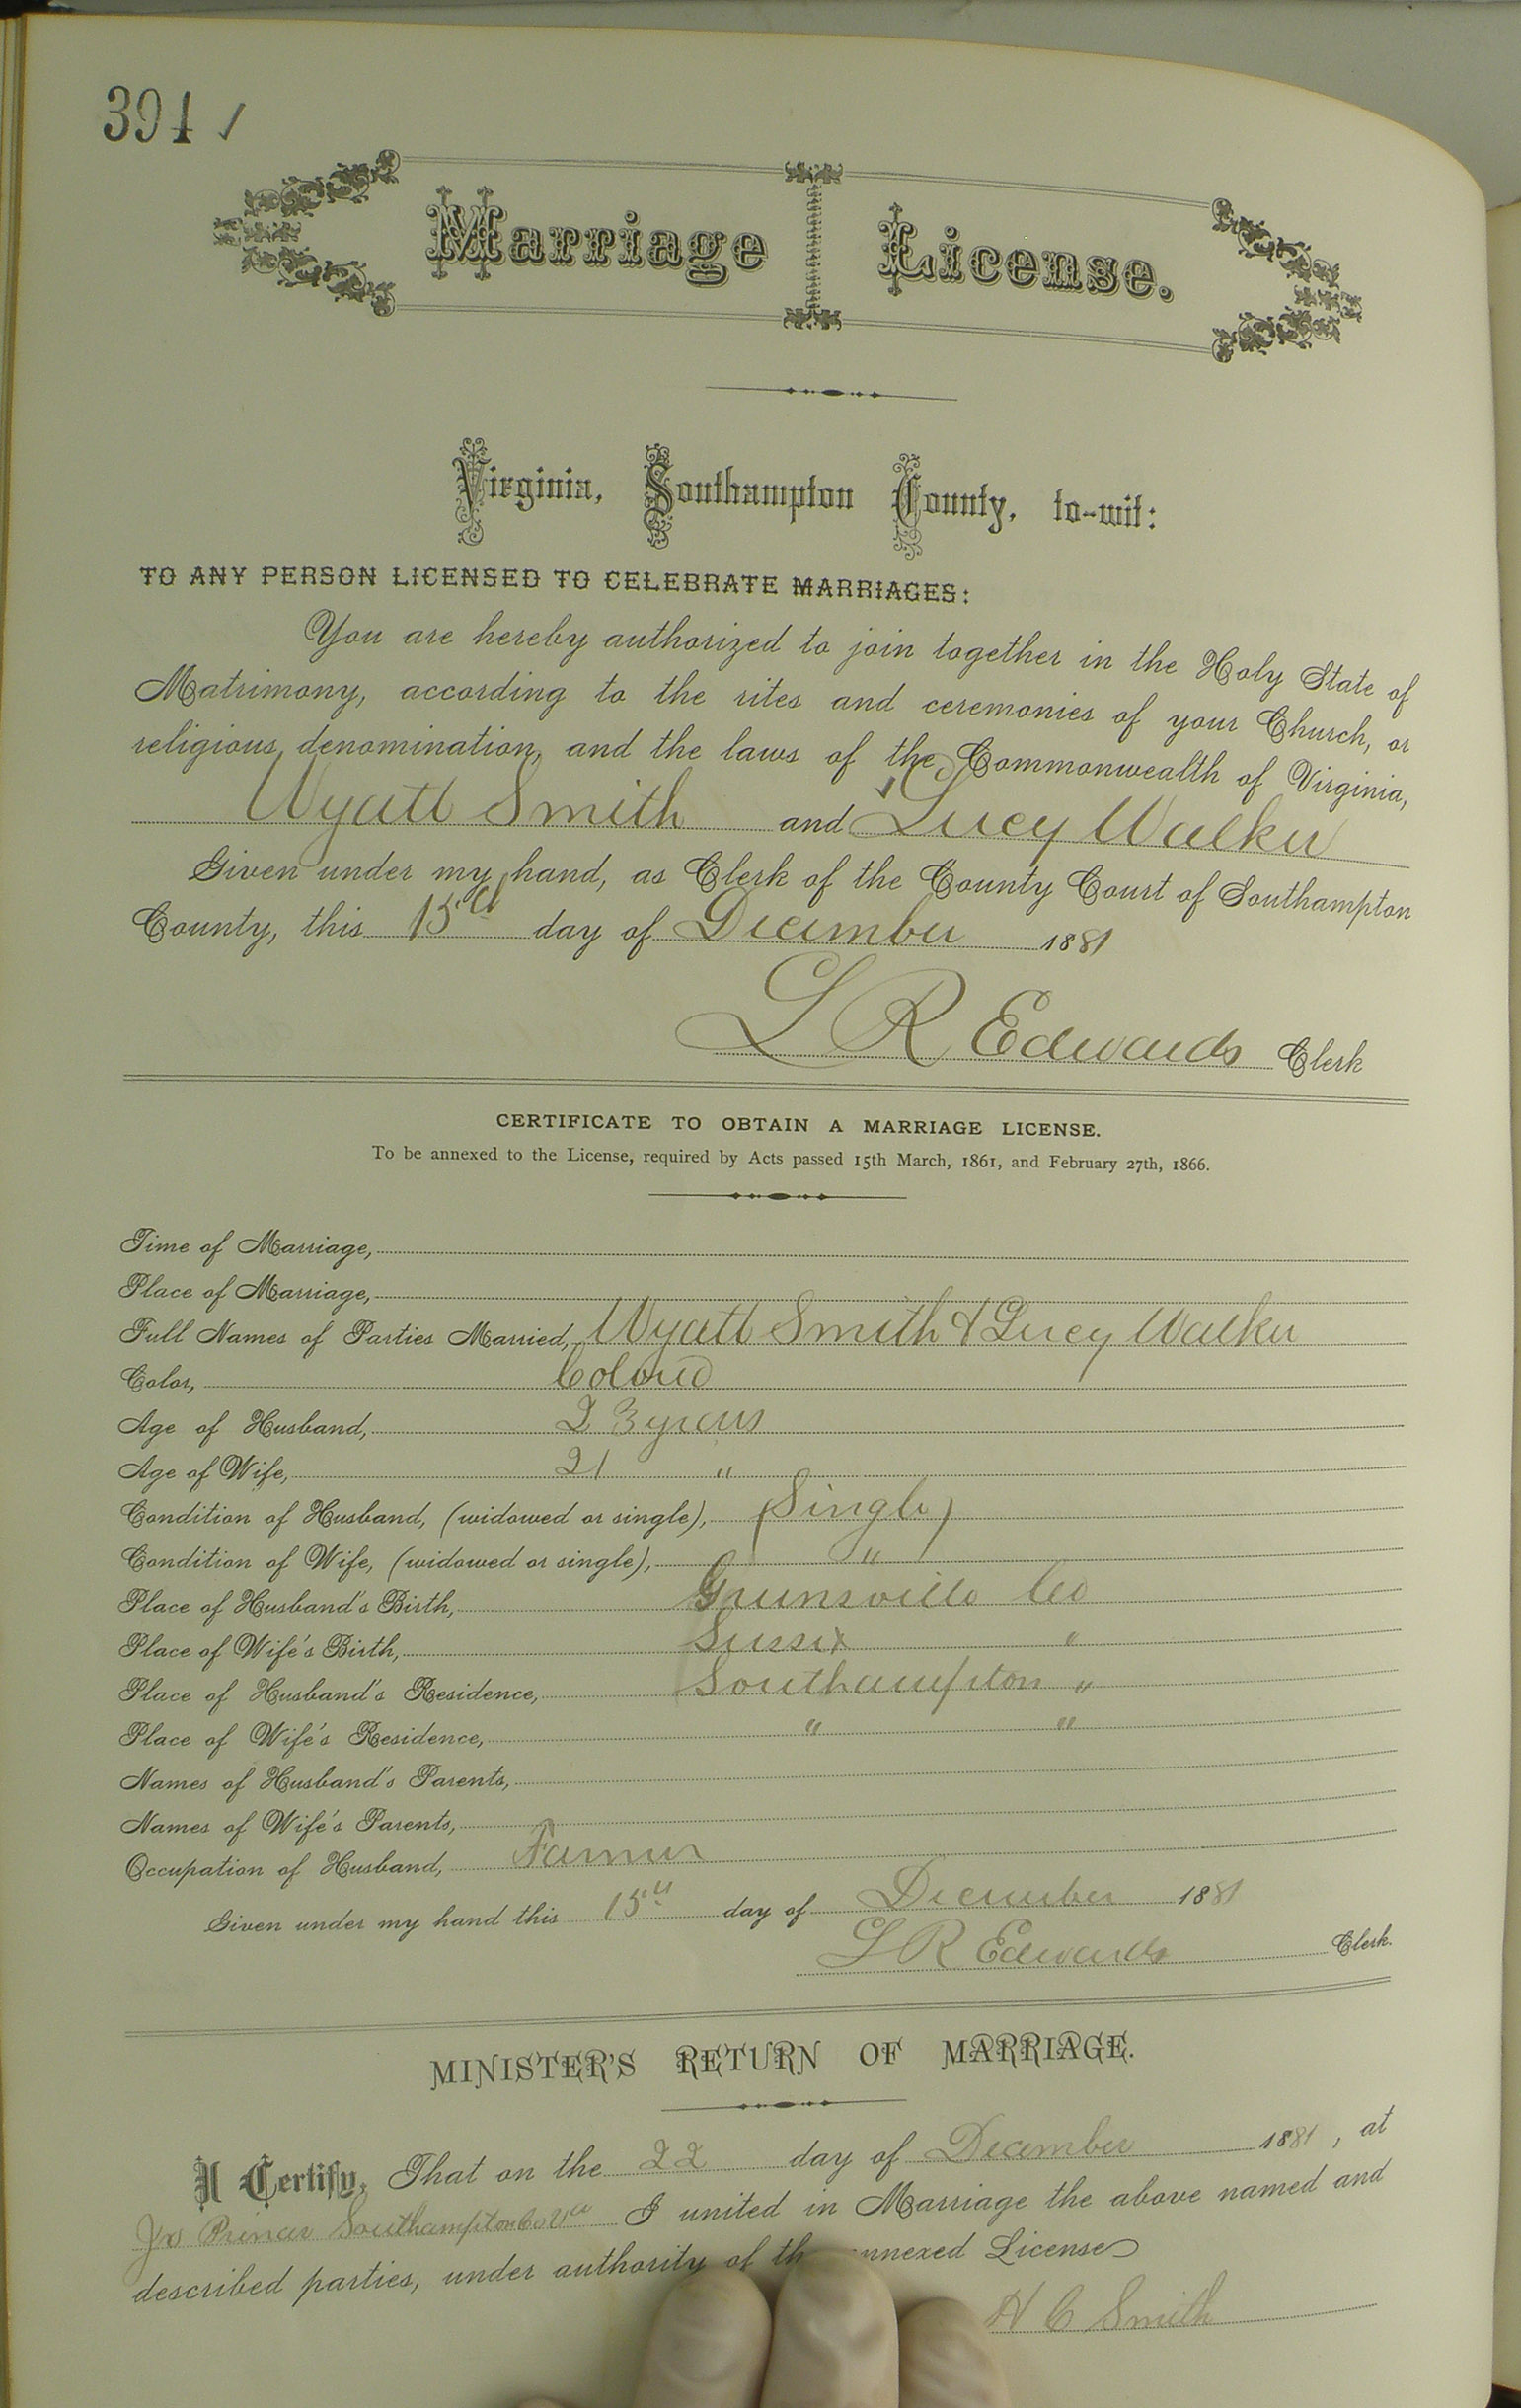 394 ✓
Marriage License.
Virginia, Southampton County, to-wit:
TO ANY PERSON LICENSED TO CELEBRATE MARRIAGES:
You are hereby authorized to join together in the Holy State of
Matrimony, according to the rites and ceremonies of your Church, or
religious denomination, and the laws of the Commonwealth of Virginia,
Wyatt Smith and Lucy Walker
Given under my hand, as Clerk of the County Court of Southampton
County, this 15th day of December 1881
L R Edwards Clerk
CERTIFICATE TO OBTAIN A MARRIAGE LICENSE.
To be annexed to the License, required by Acts passed 15th March, 1861, and February 27th, 1866.
Time of Marriage,
Place of Marriage,
Full Names of Parties Married, Wyatt Smith & Lucy Walker
Color, Colored
Age of Husband, 23 years
Age of Wife, 21 "
Condition of Husband, (widowed or single), (Single)
Condition of Wife, (widowed or single), "
Place of Husband's Birth, Greensville Co
Place of Wife's Birth, Sussex "
Place of Husband's Residence, Southampton "
Place of Wife's Residence, " "
Names of Husband's Parents,
Names of Wife's Parents,
Occupation of Husband, Farmer
Given under my hand this 15th day of December 1881
L R Edwards Clerk.
MINISTER'S RETURN OF MARRIAGE.
I Certify, That on the 22 day of December 1881, at
Southampton Co Va I united in Marriage the above named and
described parties, under authority of th nnexed License
H C Smith